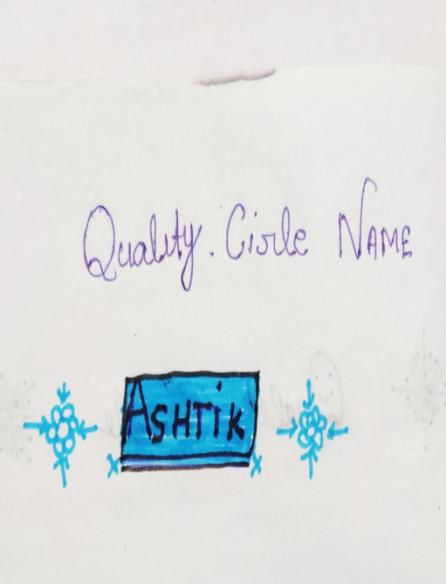 Quality. Circle NAME
ASHTiK